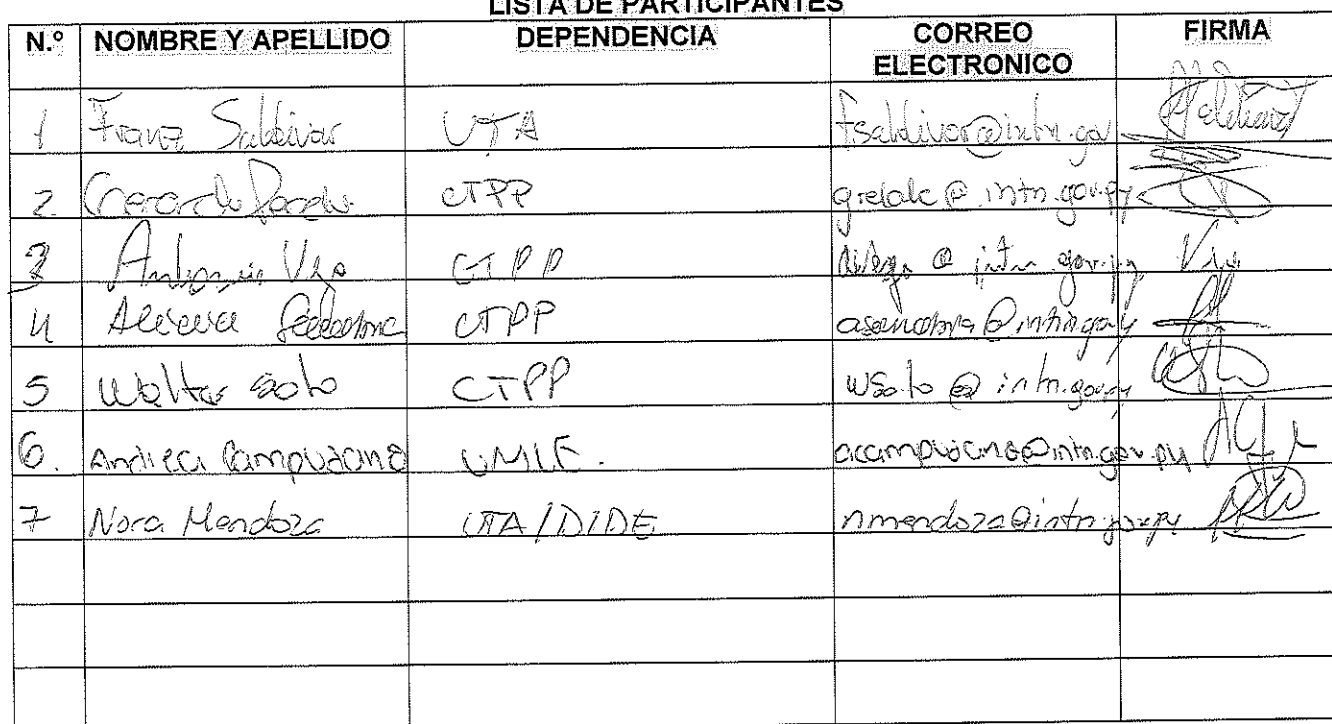 LISTA DE PARTICIPANTES
N.º NOMBRE Y APELLIDO DEPENDENCIA CORREO ELECTRONICO FIRMA
1 Franz Saldivar UTA fsaldivar@intn.gov
2. Gerardo CTPP @intn.gov.py
3 Antonio CTPP @intn.gov.py
4 CTPP
5 Walter Soto CTPP wsoto@intn.gov.py
6. Andrea Campuzano UMLE. acampuzano@intn.gov.py
7 Nora Mendoza UTA/DIDE nmendoza@intn.gov.py